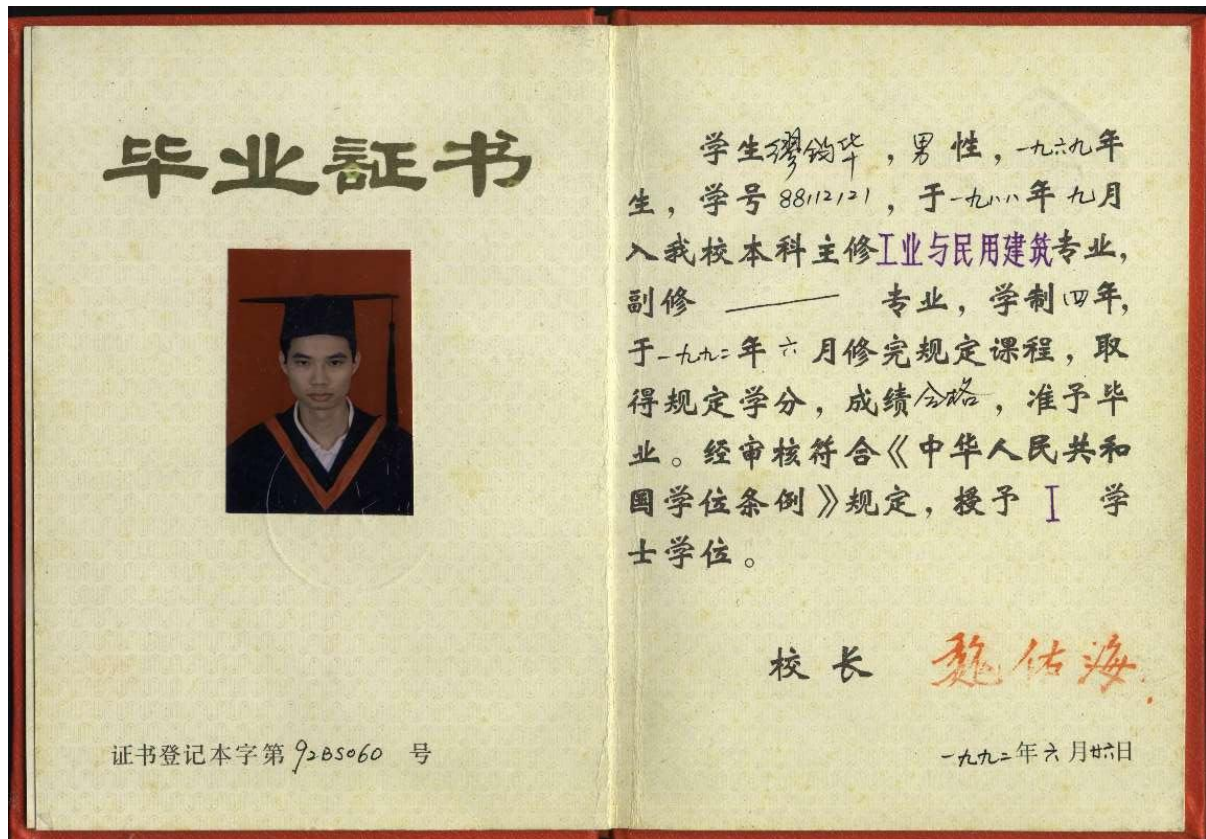 毕业証书
证书登记本字第92BS060号
学生缪钧华，男性，一九六九年
生，学号88112121，于一九八八年九月
入我校本科主修工业与民用建筑专业，
副修 —— 专业，学制四年，
于一九九二年六月修完规定课程，取
得规定学分，成绩合格，准予毕
业。经审核符合《中华人民共和
国学位条例》规定，授予 工 学
士学位。
校长 魏佑海
一九九二年六月廿六日